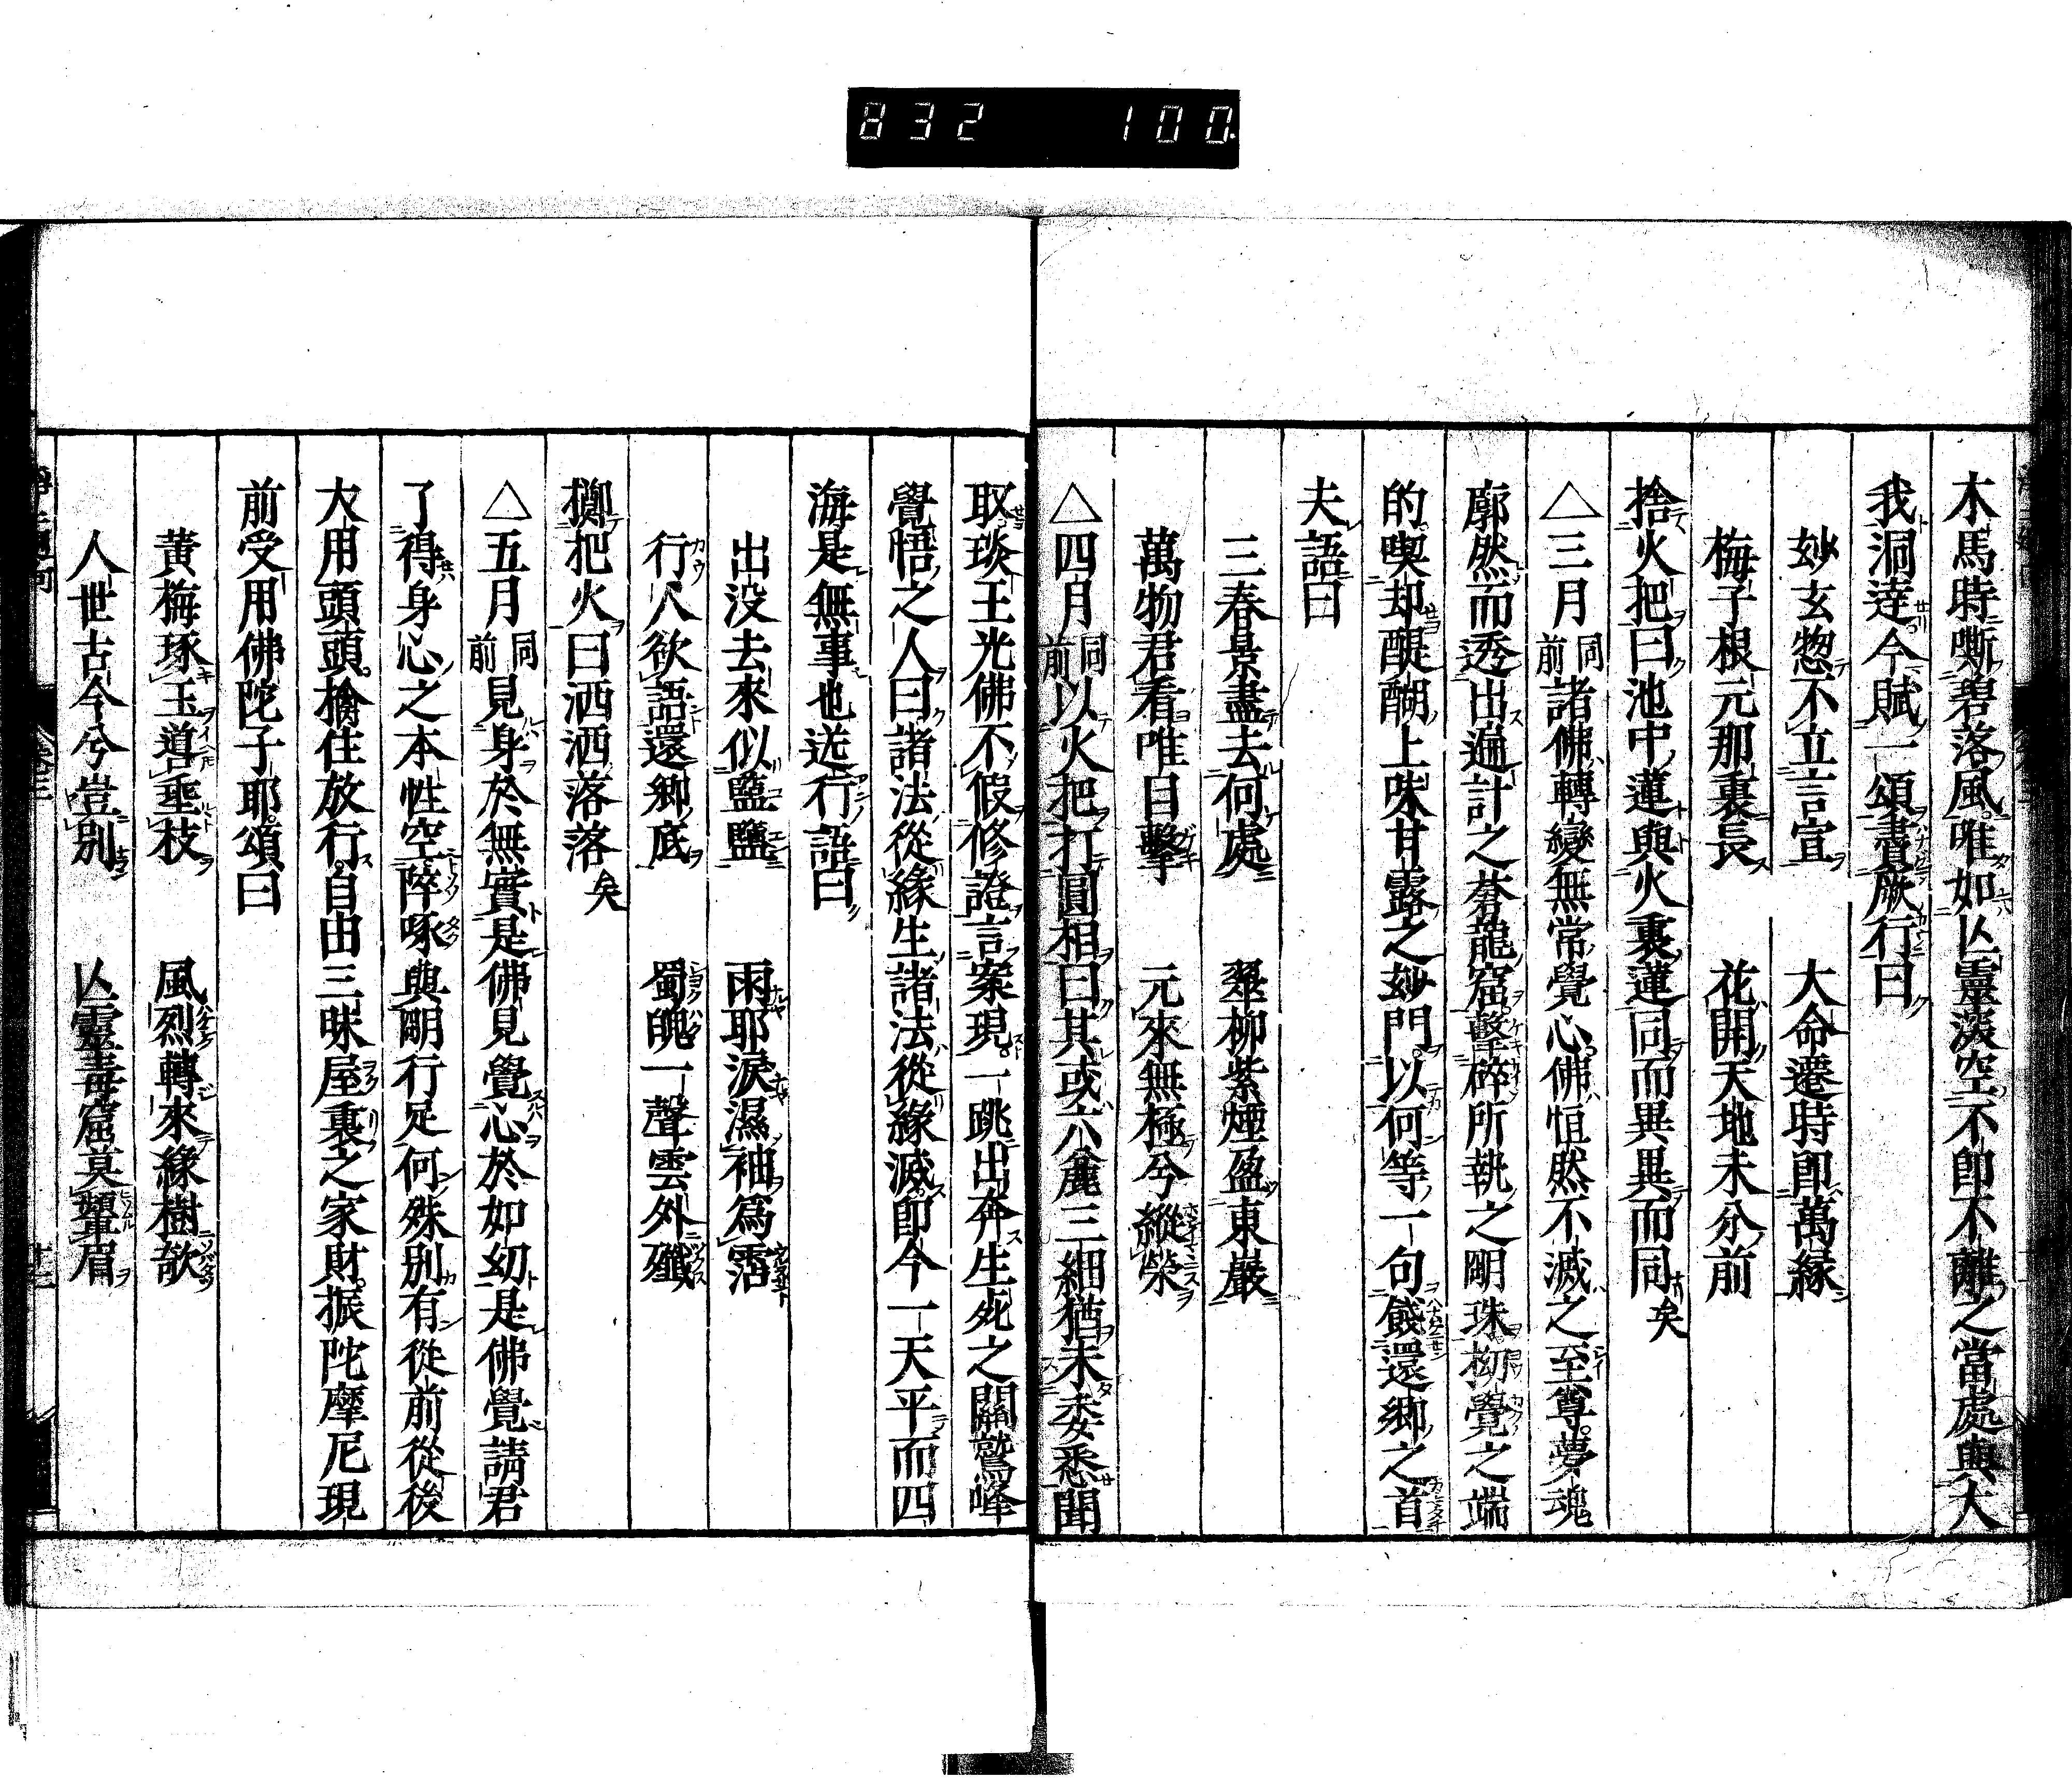 832 100
木馬時嘶碧落風唯如亡靈淡空不卽不離之當處與大
我洞達今賦一頌書厥行曰
妙玄惣不立言宣　大命遷時卽萬緣
梅子根元那裏長　花開天地未分前
捨火把曰池中蓮與火裏蓮同而異異而同矣
△三月同前諸佛轉變無常覺心佛恒然不滅之至尊夢魂
廓然而透出遍計之蒼龍窟擊碎所執之明珠拗覺之端
的喫却醍醐上味甘露之妙門以何等一句餞還鄉之首
夫語曰
三春景盡去何處　翠柳紫煙盈東巖
萬物君看唯目擊　元來無極兮縱榮
△四月同前以火把打圓相曰其或六麁三細猶未委悉聞
取琰王光佛不假修證言案現一跳出奔生死之關鷲峰
覺悟之人曰諸法從緣生諸法從緣滅卽今一天平而四
海是無事也送行語曰
出没去來似監鹽　雨耶淚濕袖爲霑
行人欲語還鄉底　蜀魄一聲雲外殲
擲把火曰洒洒落落矣
△五月同前見身於無實是佛見覺心於如幻是佛覺請君
了得身心之本性空啐啄與明行足何殊別有從前從後
大用頭頭擒住放行自由三昧屋裏之家財振陀摩尼現
前受用佛陀子耶頌曰
黃梅琢玉導垂枝　風烈轉來緣樹欹
人世古今兮豈別　亡靈毒窟莫顰眉